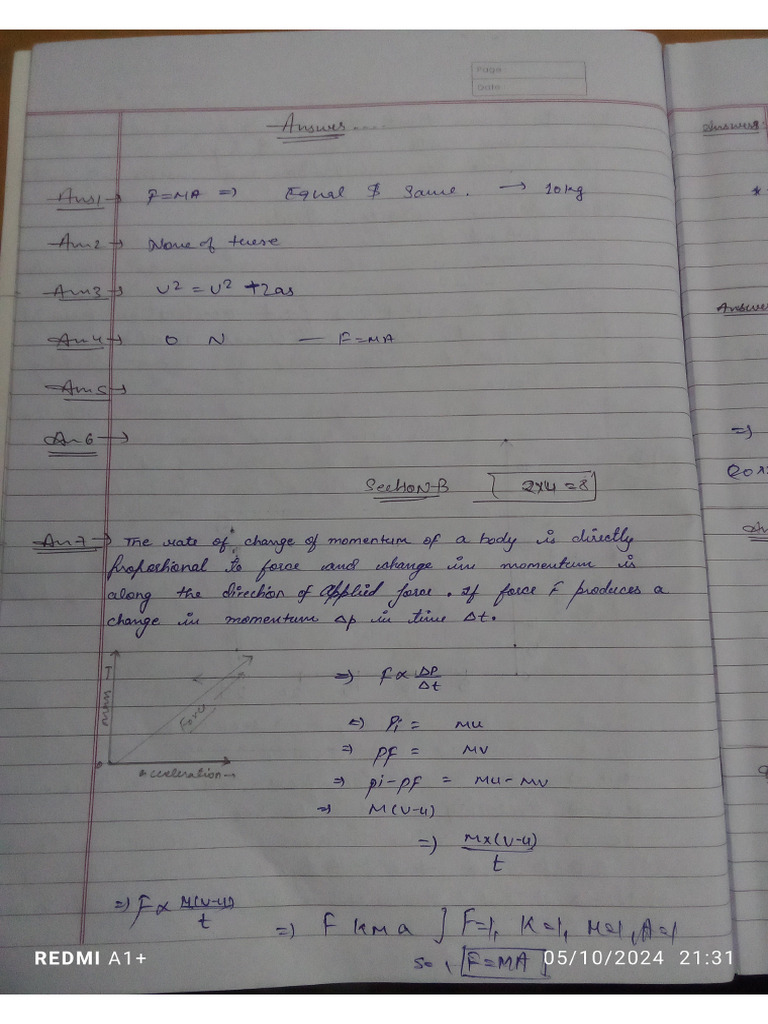 Page
Date
Answer....
Ans1→ F=MA ⇒ Equal & Same. → 10kg
An2→ None of these
An3→ v² = u² +2as
An4→ O N — F=MA
An5→
An6→
Section-B 2x4=8
An7→ The rate of change of momentum of a body is directly
proportional to force and change in momentum is
along the direction of applied force. If force F produces a
change in momentum Δp in time Δt.
⇒ F∝ ΔP/Δt
Force
acceleration→
⇒ Pi = Mu
⇒ pf = Mv
⇒ pi-pf = Mu-Mv
⇒ M(v-u)
⇒ Mx(v-u)/t
⇒ F∝ M(v-u)/t
⇒ F kma ] F=1, K=1, M=1, A=1
So, F=MA
REDMI A1+ 05/10/2024 21:31
Answer
⇒